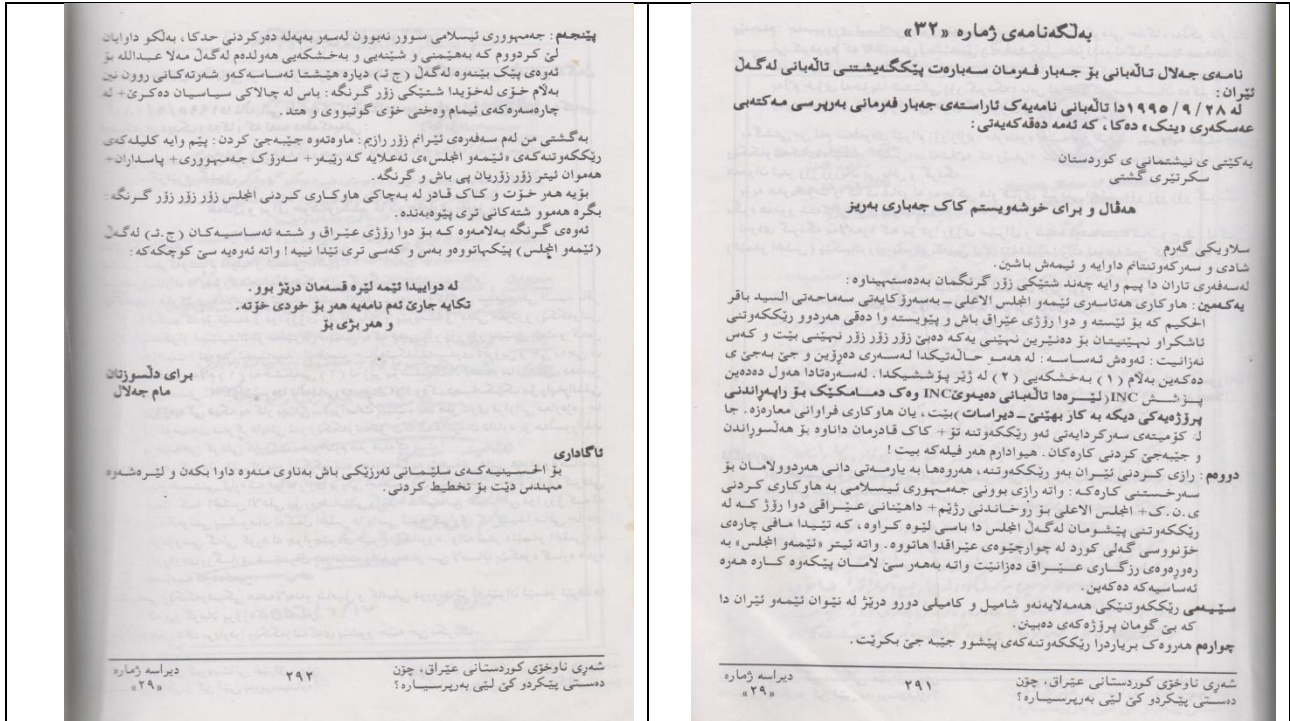 بەڵگەنامەی ژمارە «٣٢»
نامەی جەلال تاڵەبانی بۆ جەبار فەرمان سەبارەت پێکگەیشتنی تاڵەبانی لەگەڵ
ئێران:
لە ٢٨ / ٩ / ١٩٩٥دا تاڵەبانی نامەیەک ئاراستەی جەبار فەرمانی بەرپرسی مەکتەبی
عەسکەری «ینک» دەکا، کە ئەمە دەقەکەیەتی:
یەکێتی ی نیشتمانی ی کوردستان
سکرتێری گشتی
هەڤاڵ و برای خۆشەویستم کاک جەباری بەڕێز
سلاویکی گەرم
شادی و سەرکەوتنتانم داوایە و ئیمەش باشین.
لەسەفەری تاران دا پیم وایە چەند شتێکی زۆر گرنگمان بەدەستهیناوە:
یەکەمین: هاوکاری هەتاسەری ئێمەو المجلس الاعلی ـ بەسەرۆکایەتی سەماحەتی السید باقر
الحکیم کە بۆ ئێستە و دوا رۆژی عێراق باش و پێویستە وا دەقی هەردوو رێککەوتنی
ئاشکراو نهێنیتان بۆ دەنێرین نهێنی یەکە دەبێ زۆر زۆر زۆر نهێنی بێت و کەس
نەزانیت: ئەوەش ئەساسە: لە هەمو حاڵەتیکدا لەسەری دەرۆین و جێ بەجێ ی
دەکەین بەڵام (١) بەخشکەیی (٢) لە ژێر پۆششیکدا. لەسەرەتادا هەول دەدەین
پۆشش INC(لێرەدا تاڵەبانی دەیەوێINC وەک دەمامکێک بۆ راپەراندنی
پرۆژەیەکی دیکە بە کار بهێنێ ـ دیراسات)بێت، یان هاوکاری فراوانی معارەزە. جا
لـ کۆمیتەی سەرکردایەتی ئەو رێککەوتنە تۆ+ کاک قادرمان داناوە بۆ هەڵسوڕاندن
و جێبەجێ کردنی کارەکان. هیوادارم هەر فیلەکە بیت!
دووەم: رازی کردنی ئێران بەو رێککەوتنە، هەروەها بە یارمەتی دانی هەردوولامان بۆ
سەرخستنی کارەکە: واتە رازی بوونی جەمهوری ئیسلامی بە هاوکاری کردنی
ی.ن.ک+ المجلس الاعلی بۆ روخاندنی رژێم+ داهێنانی عێراقی دوا رۆژ کە لە
رێککەوتنی پێشومان لەگەڵ المجلس دا باسی لێوە کراوە، کە تێیدا مافی چارەی
خۆنووسی گەلی کورد لە چوارچێوەی عێراقدا هاتووە. واتە ئیتر «ئێمەو المجلس» بە
رەورەوەی رزگاری عێراق دەزانێت واتە بەهەر سێ لامان پێکەوە کارە هەرە
ئەساسیەکە دەکەین.
سێیەمی رێککەوتنێکی هەمەلایەنەو شامیل و کامیلی دوورو درێژ لە نێوان ئێمەو ئێران دا
کە بێ گومان پرۆژەکەی دەبینن.
چوارەم هەروەک بریاردرا رێککەوتنەکەی پێشوو جێبە جێ بکرێت.
شەڕی ناوخۆی کوردستانی عێراق، چۆن
دەستی پێکردو کێ لێی بەرپرسیارە؟
٢٩١
دیراسە ژمارە
«٢٩»
پێنجەم: جەمهووری ئیسلامی سوور نەبوون لەسەر بەپەلە دەرکردنی حدکا، بەڵکو داوایان
لێ کردووم کە بەهێمنی و شێنەیی و بەخشکەیی هەولدەم لەگەڵ مەلا عبداللە بۆ
ئەوەی پێک بێنەوە لەگەڵ (ج ئـ) دیارە هێشتا ئەساسەکەو شەرتەکانی روون نین
بەلام خۆی لەخۆیدا شتێکی زۆر گرنگە: باس لە چالاکی سیاسیان دەکرێ+ لە
چارەسەرەکەی ئیمام وەختی خۆی گوتبووی و هتد.
بەگشتی من لەم سەفەرەی ئێرانم زۆر رازیم: ماوەتەوە جێبەجێ کردن: پێم وایە کلیلەکەی
رێککەوتنەکەی «ئێمەو المجلس»ی ئەعلایە کە رێبەر+ سەرۆک جەمهووری+ پاسداران+
هەموان ئیتر زۆر زۆریان پی باش و گرنگە.
بۆیە هەر خۆت و کاک قادر لە بەچاکی هاوکاری کردنی المجلس زۆر زۆر زۆر گرنگە:
بگرە هەموو شتەکانی تری پێوەبەندە.
ئەوەی گرنگە بەلامەوە کە بۆ دوا رۆژی عێراق و شتە ئەساسیەکان (ج.ئـ) لەگەڵ
(ئێمەو المجلس) پێکهاتووەو بەس و کەسی تری تێدا نییە! واتە ئەوەیە سێ کوچکەکە:
لە دواییدا ئێمە لێرە قسەمان درێژ بوو.
تکایە جارێ ئەم نامەیە هەر بۆ خودی خۆتە.
و هەر بژی بۆ
برای دلسۆزتان
مام جەلال
ئاگاداری
بۆ الحسینیەکەی سلێمانی ئەرزێکی باش بەناوی منەوە داوا بکەن و لێرەشەوە
مهندس دێت بۆ تخطیط کردنی.
شەڕی ناوخۆی کوردستانی عێراق، چۆن
دەستی پێکردو کێ لێی بەرپرسیارە؟
٢٩٢
دیراسە ژمارە
«٢٩»